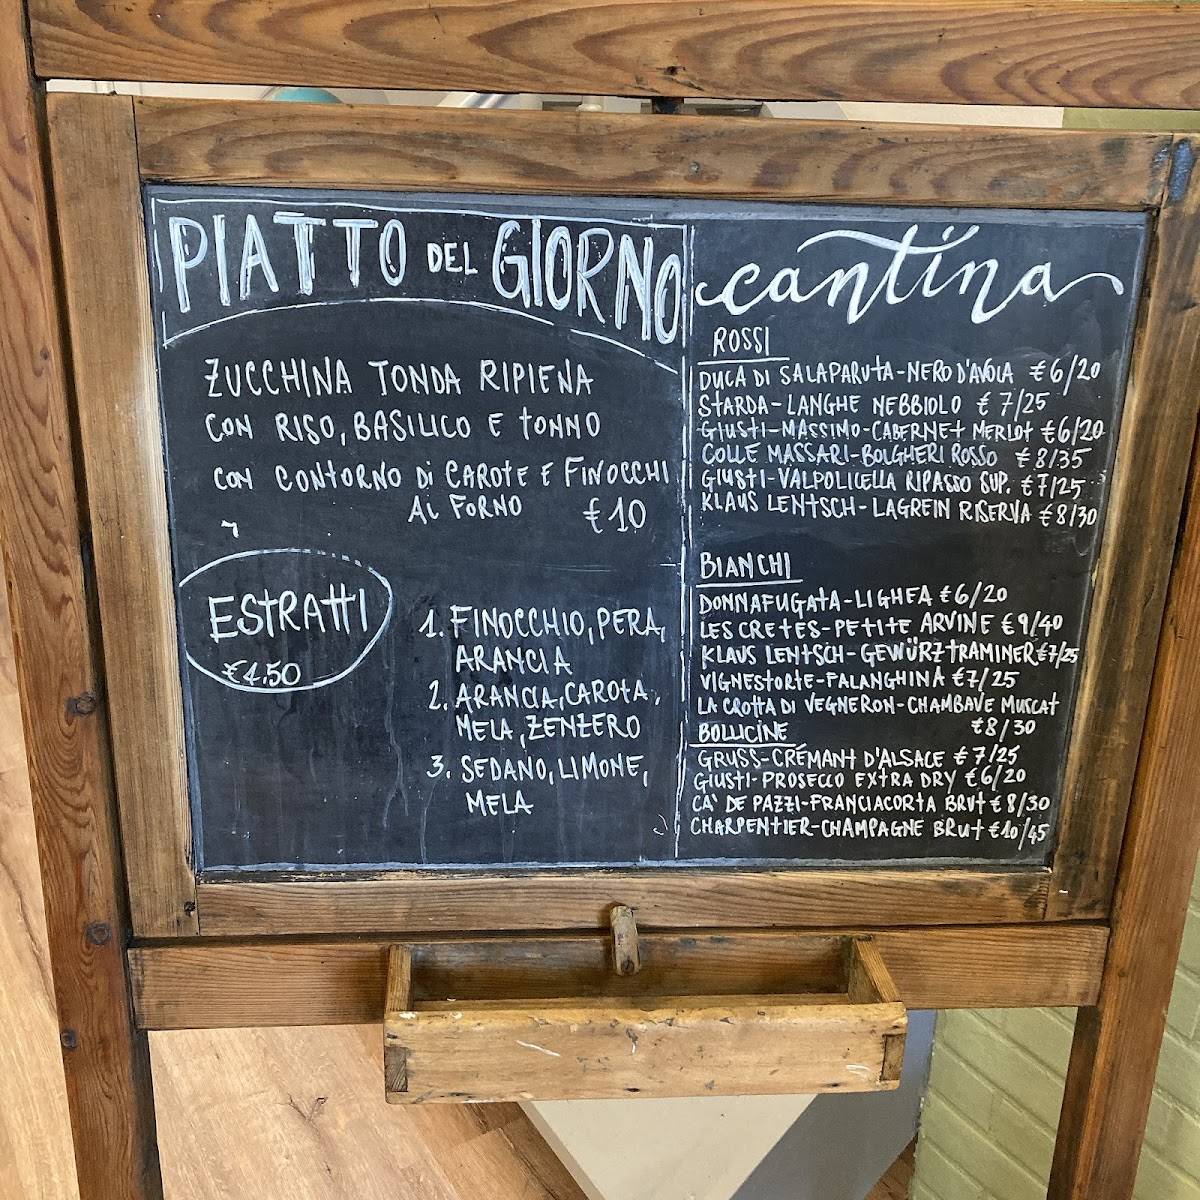 PIATTO DEL GIORNO
ZUCCHINA TONDA RIPIENA
CON RISO, BASILICO E TONNO
CON CONTORNO DI CAROTE E FINOCCHI
AI FORNO
€10
ESTRATTI
€4.50
1. FINOCCHIO, PERA,
ARANCIA
2. ARANCIA, CAROTA,
MELA, ZENZERO
3. SEDANO, LIMONE,
MELA
cantina
ROSSI
DUCA DI SALAPARUTA-NERO D'AVOLA €6/20
STARDA-LANGHE NEBBIOLO €7/25
GIUSTI-MASSIMO-CABERNET MERLOT €6/20
COLLE MASSARI-BOLGHERI ROSSO €8/35
GIUSTI-VALPOLICELLA RIPASSO SUP. €7/25
KLAUS LENTSCH-LAGREIN RISERVA €8/30
BIANCHI
DONNAFUGATA-LIGHEA €6/20
LES CRETES-PETITE ARVINE €9/40
KLAUS LENTSCH-GEWÜRZTRAMINER €7/25
VIGNESTORTE-FALANGHINA €7/25
LA CROTTA DI VEGNERON-CHAMBAVE MUSCAT
€8/30
BOLLICINE
GRUSS-CRÉMANT D'ALSACE €7/25
GIUSTI-PROSECCO EXTRA DRY €6/20
CA' DE PAZZI-FRANCIACORTA BRUT €8/30
CHARPENTIER-CHAMPAGNE BRUT €10/45